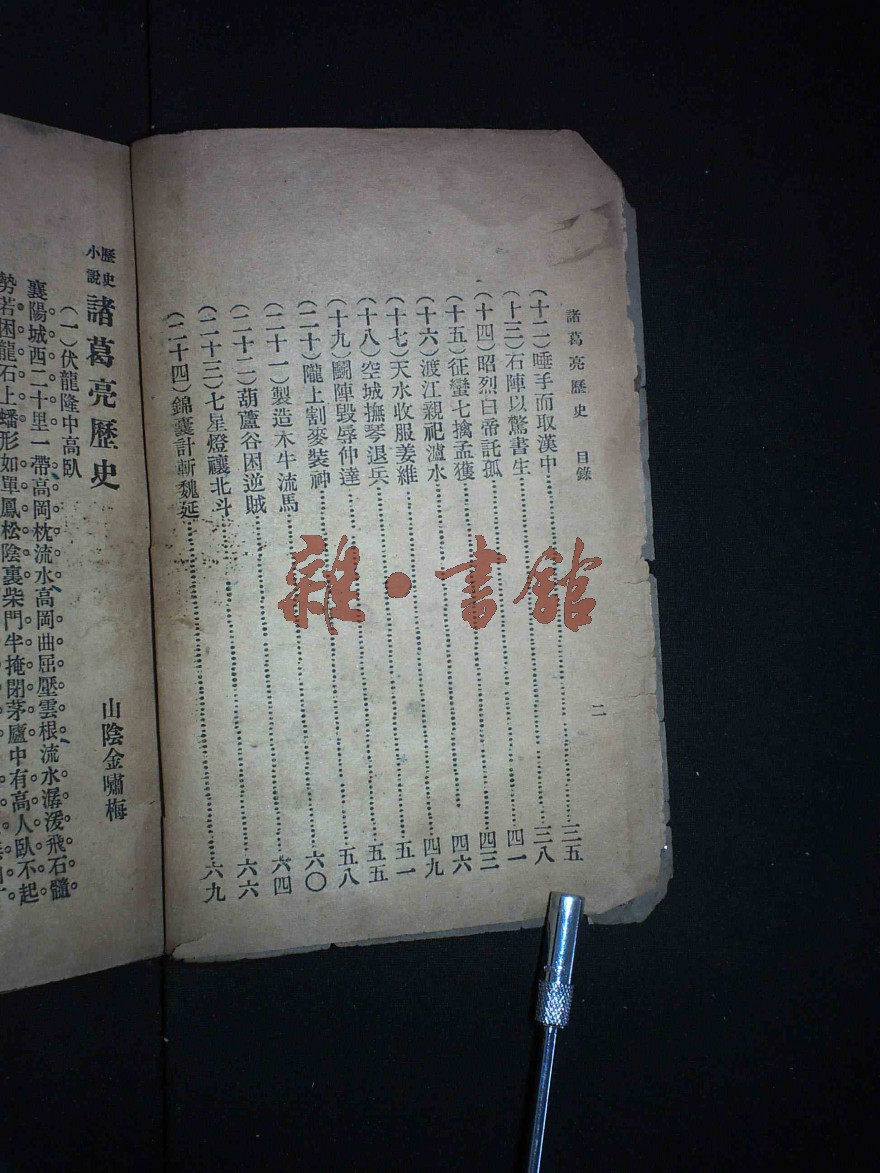 諸葛亮歷史　目錄　二
（十二）唾手而取漢中……三五
（十三）石陣以驚書生……三八
（十四）昭烈白帝託孤……四一
（十五）征蠻七擒孟獲……四三
（十六）渡江親祀瀘水……四六
（十七）天水收服姜維……四九
（十八）空城撫琴退兵……五一
（十九）鬭陣毀辱仲達……五五
（二十）隴上割麥裝神……五八
（二十一）製造木牛流馬……六〇
（二十二）葫蘆谷困逆賊……六四
（二十三）七星燈禳北斗……六六
（二十四）錦囊計斬魏延……六九
歷史小說　諸葛亮歷史
山陰金嘯梅
（一）伏龍隆中高臥
襄陽城西二十里一帶高岡枕流水高岡曲屈壓雲根流水潺湲飛石髓
勢若困龍石上蟠形如單鳳松陰裏柴門半掩閉茅廬中有高人臥不起
雜·書館